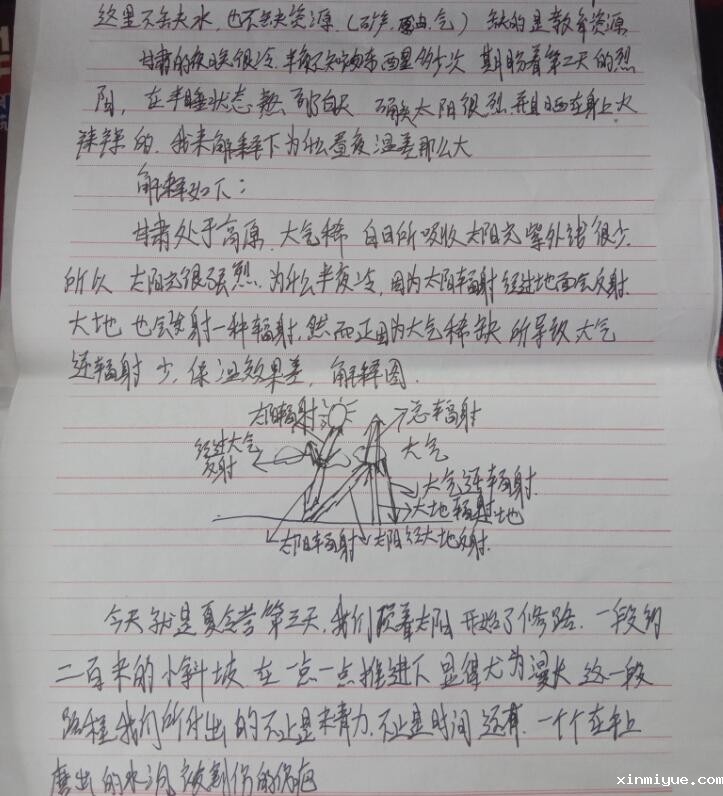 这里不缺水,也不缺资源.(矿产.原油.气) 缺的是教育资源
甘肃的夜晚很冷.半夜不知冻东西星多少次 期盼着第二天的烈
阳,在半睡状态熬到白天 确实太阳很烈.并且晒在身上火
辣辣的.我来解释下为什么昼夜温差那么大
解释如下:
甘肃处于高原.大气稀 白日所吸收太阳光紫外线很少.
所以 太阳光很强烈.为什么半夜冷,因为太阳辐射经过地面会反射.
大地也会发射一种辐射.然而正因为大气稀缺所导致大气
逆辐射少.保温效果差,解释图.
太阳辐射
总辐射
经过大气
反射
大气
大气逆辐射
大地辐射
地
太阳辐射
太阳经大地反射.
今天就是夏令营第三天,我们顶着太阳开始了修路.一段约
二百米的小斜坡在一点一点推进下显得尤为漫长 这一段
路程我们所付出的不止是来着力.不止是时间 还有.一个个在手上
磨出的水泡 被割伤的伤疤
xinmiyue.com